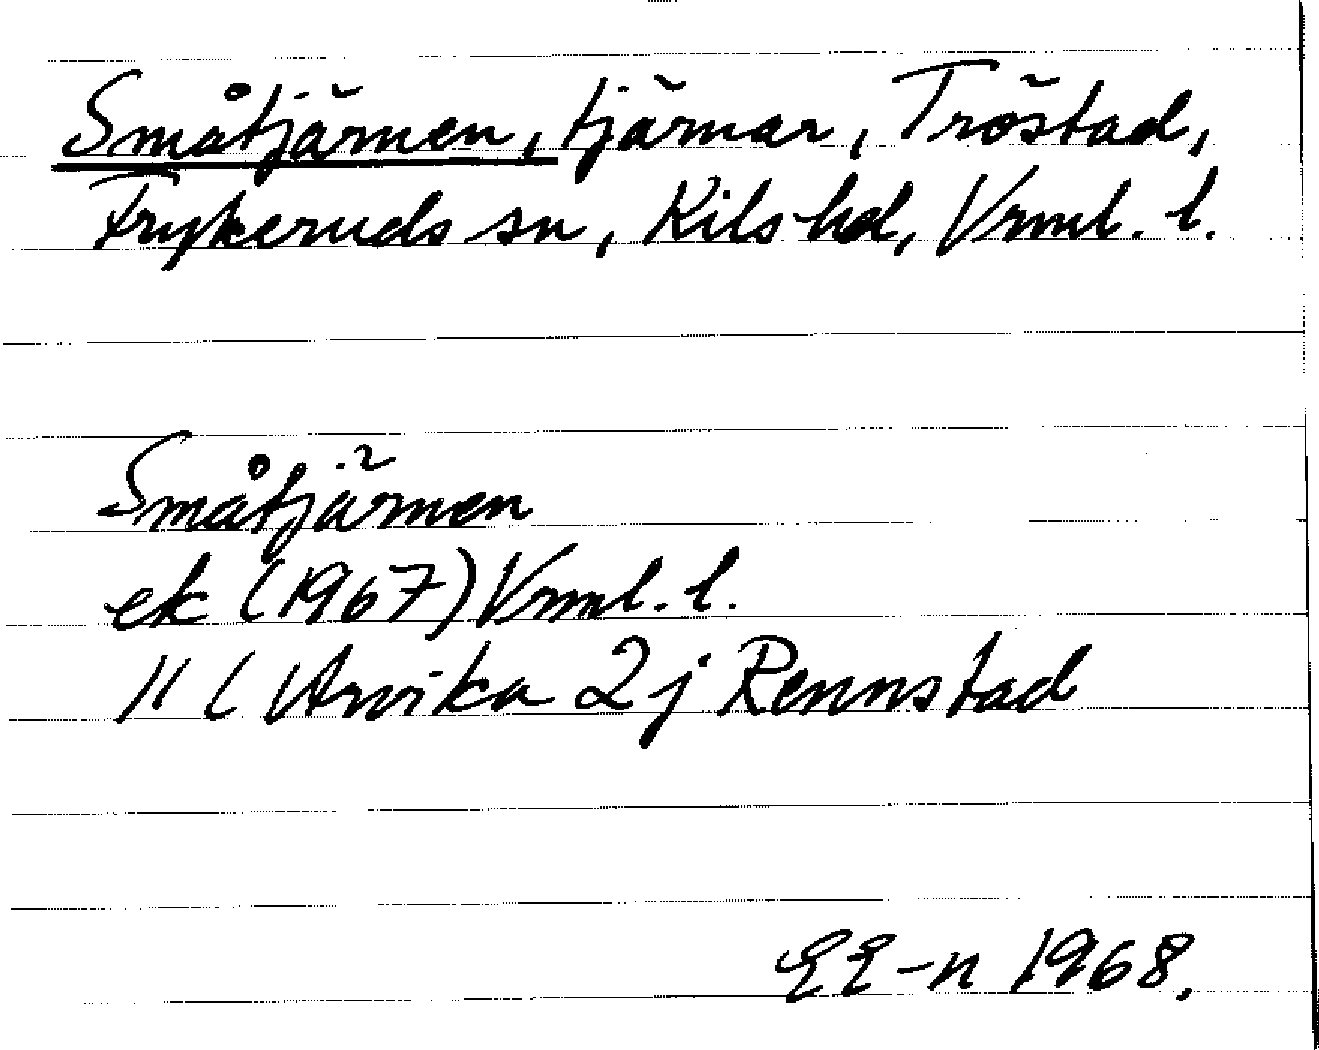 Småtjärnen, tjärnar, Tröstad,
Frykeruds sn, Kils hd, Vrml. l.
Småtjärnen
ek (1967) Vrml. l.
11 C Arvika 2j Rennstad
EE-n 1968.